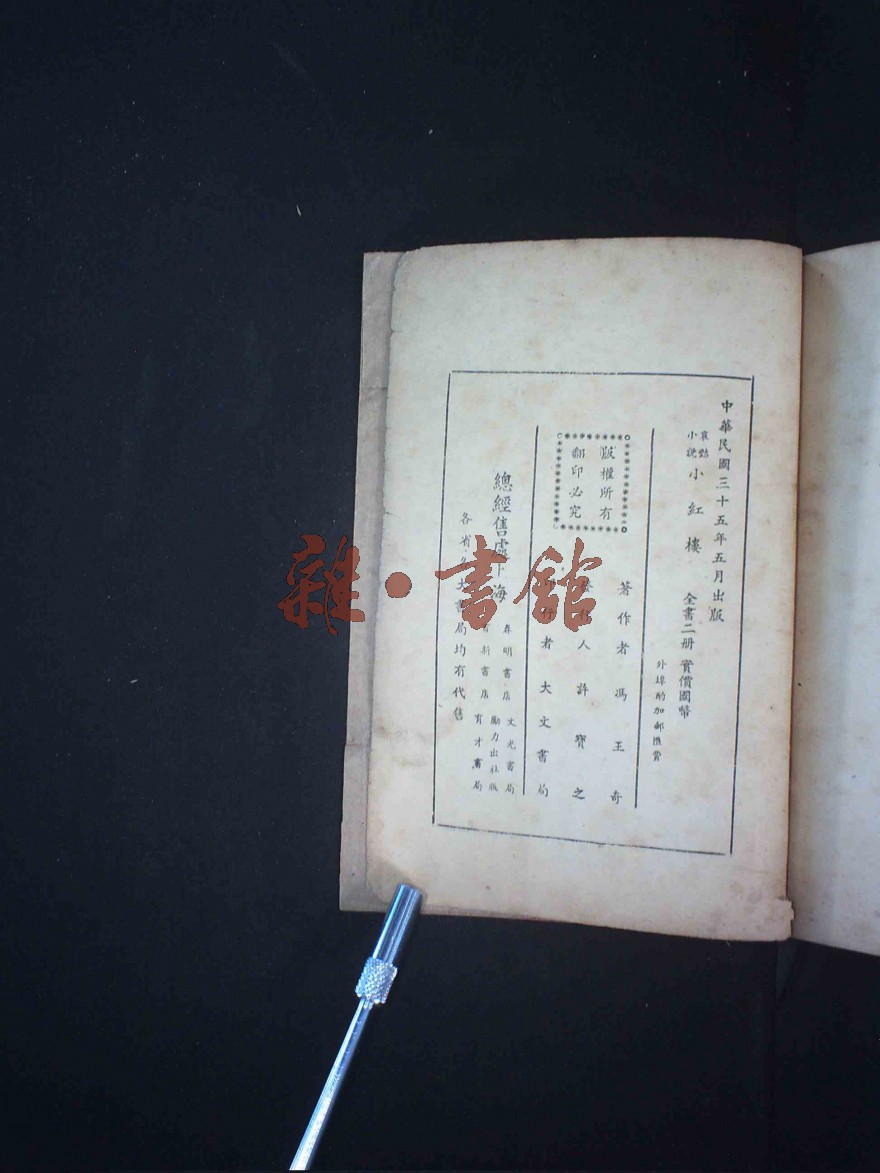 中華民國三十五年五月出版
哀艷小說 小紅樓 全書二册 實價國幣
外埠酌加郵匯費
著作者 馮玉奇
發行人 許寶之
印行者 大文書局
版權所有
翻印必究
總經售處上海
春明書店 文光書局
勵力出社版
新書店 育才書局
各省各大書局均有代售
雜·書館